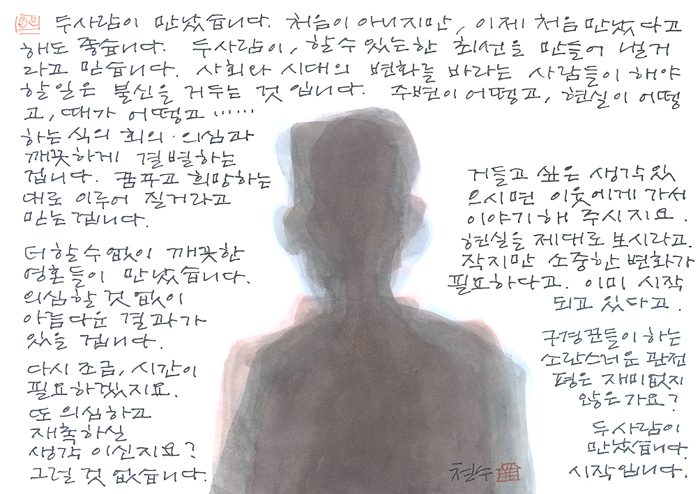 두사람이 만났습니다. 처음이 아니지만, 이제 처음 만났다고
해도 좋습니다. 두사람이, 할수있는한 최선을 만들어 낼거
라고 믿습니다. 사회와 시대의 변화를 바라는 사람들이 해야
할일은 불신을 거두는 것 입니다. 주변이 어떻고, 현실이 어떻
고, 때가 어떻고……
하는 식의 회의·의심과
깨끗하게 결별하는
겁니다. 꿈꾸고 희망하는
대로 이루어 질거라고
믿는겁니다.
더할수없이 깨끗한
영혼들이 만났습니다.
의심할것없이
아름다운 결과가
있을 겁니다.
다시 조금, 시간이
필요하겠지요.
또 의심하고
재촉하실
생각 이신지요?
그럴 것 없습니다.
거들고 싶은 생각있
으시면 이웃에게 가서
이야기해 주시지요.
현실을 제대로 보시라고.
작지만 소중한 변화가
필요하다고. 이미 시작
되고 있다고.
구경꾼들이 하는
소란스러운 관전
평은 재미없지
않은가요?
두사람이
만났습니다.
시작입니다.
철수